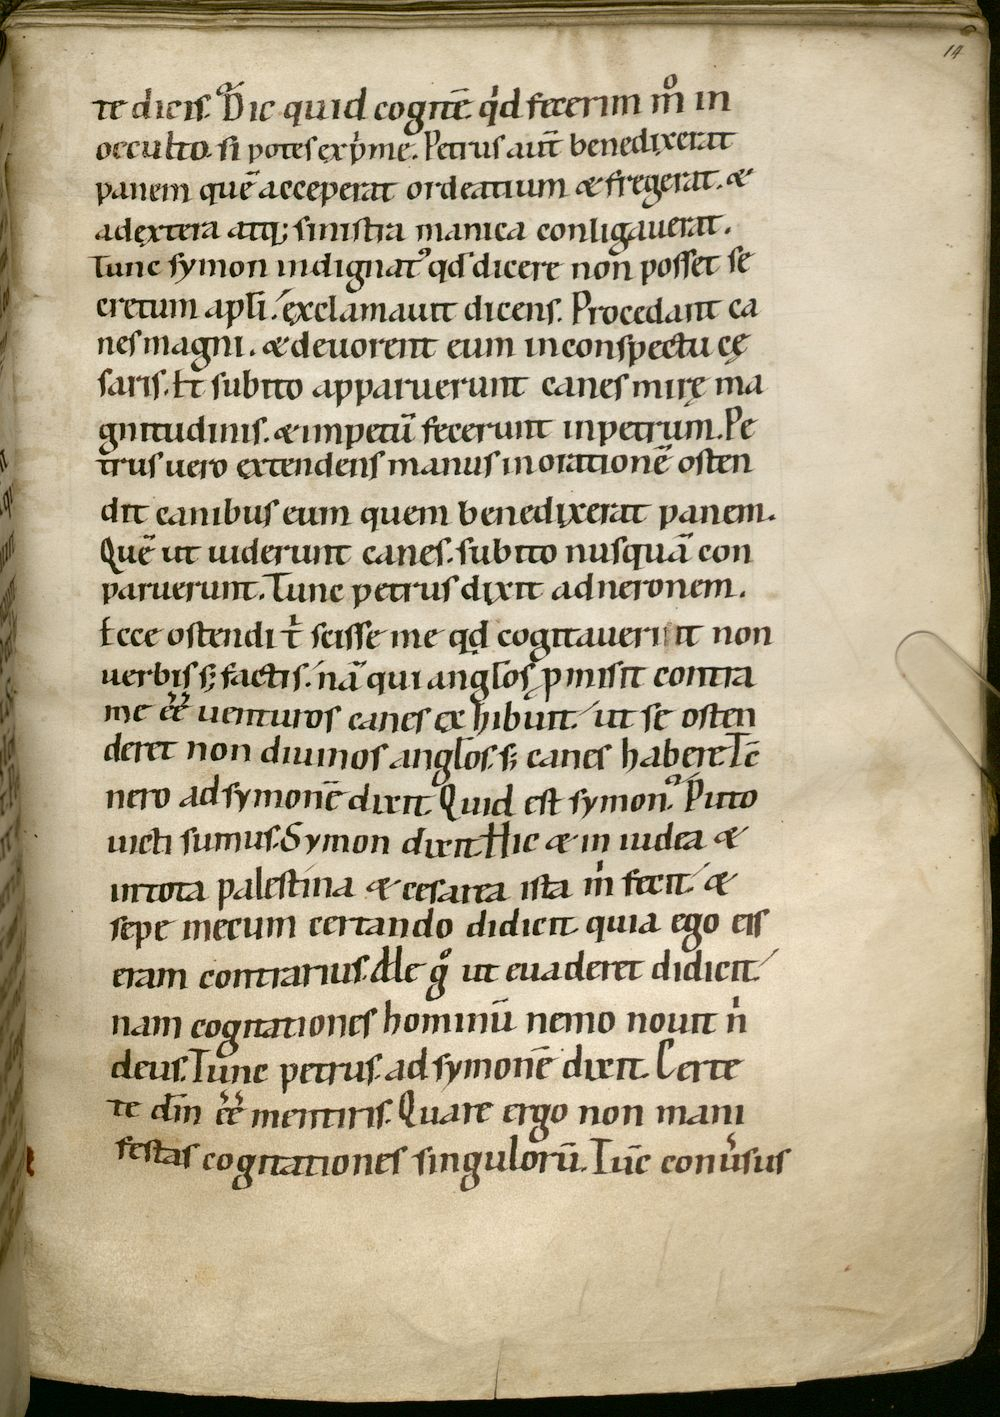 14
te dicis. Dic quid cogitē. qd fecerim m̊ in
occulto. si potes exp̍me. Petrus aut̄ benedixerat
panem quē acceperat ordeatium & fregerat. &
adextera atq; sinistra manica conligauerat.
Tunc symon indignat᾽ qd dicere non posset se
cretum apłi. exclamauit dicens. Procedant ca
nes magni. & deuorent eum inconspectu cę
saris. Et subito apparuerunt canes mirę ma
gnitudinis. & impetū fecerunt inpetrum. Pe
trus uero extendens manus inorationē osten
dit canibus eum quem benedixerat panem.
Quē ut uiderunt canes. subito nusquā con
paruerunt. Tunc petrus dixit adneronem.
Ecce ostendi t̍ scisse me qd cogitauerit non
uerbis s; factis. nā qui angłos ꝓmisit contra
me ēē uenturos canes exhibuit. ut se osten
deret non diuinos angłos. s; canes habere. Tc̄
nero adsymonē dixit. Quid est symon. Puto
uicti sumus. Symon dixit. Hic & in iudea &
intota palestina & cesarea ista m̍ fecit. &
sepe mecum certando didicit quia ego eis
eram contrarius. Ille g̊ ut euaderet didicit.
nam cogitationes hominū nemo nouit n̍
deus. Tunc petrus. adsymonē dixit. Certe
te dm̄ ēē mentiris. Quare ergo non mani
festas cogitationes singulorū. Tūc conu̍sus